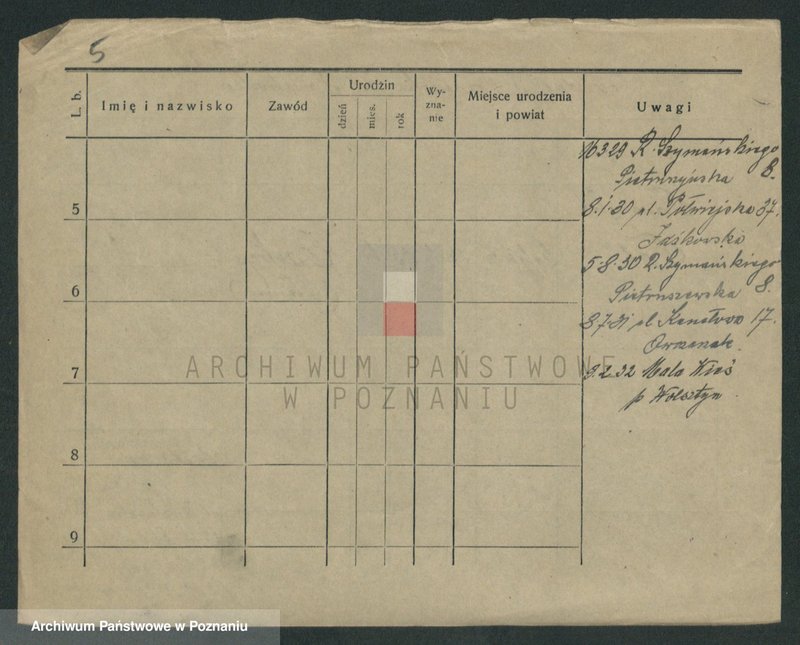 5
L. b.
Imię i nazwisko
Zawód
Urodzin
dzień
mies.
rok
Wy-
zna-
nie
Miejsce urodzenia
i powiat
Uwagi
16 3 29 R. Szymańskiego
8.
5
8.1.30 ul. Półwiejska 37.
Jaśkowska
5.8.30 R. Szymańskiego
Pietruszewska 8.
6
8 7 31 ul. Kanałowa 17.
7
9.2.32 Mała Wieś
p Wolsztyn
8
9
ARCHIWUM PAŃSTWOWE
W POZNANIU
Archiwum Państwowe w Poznaniu